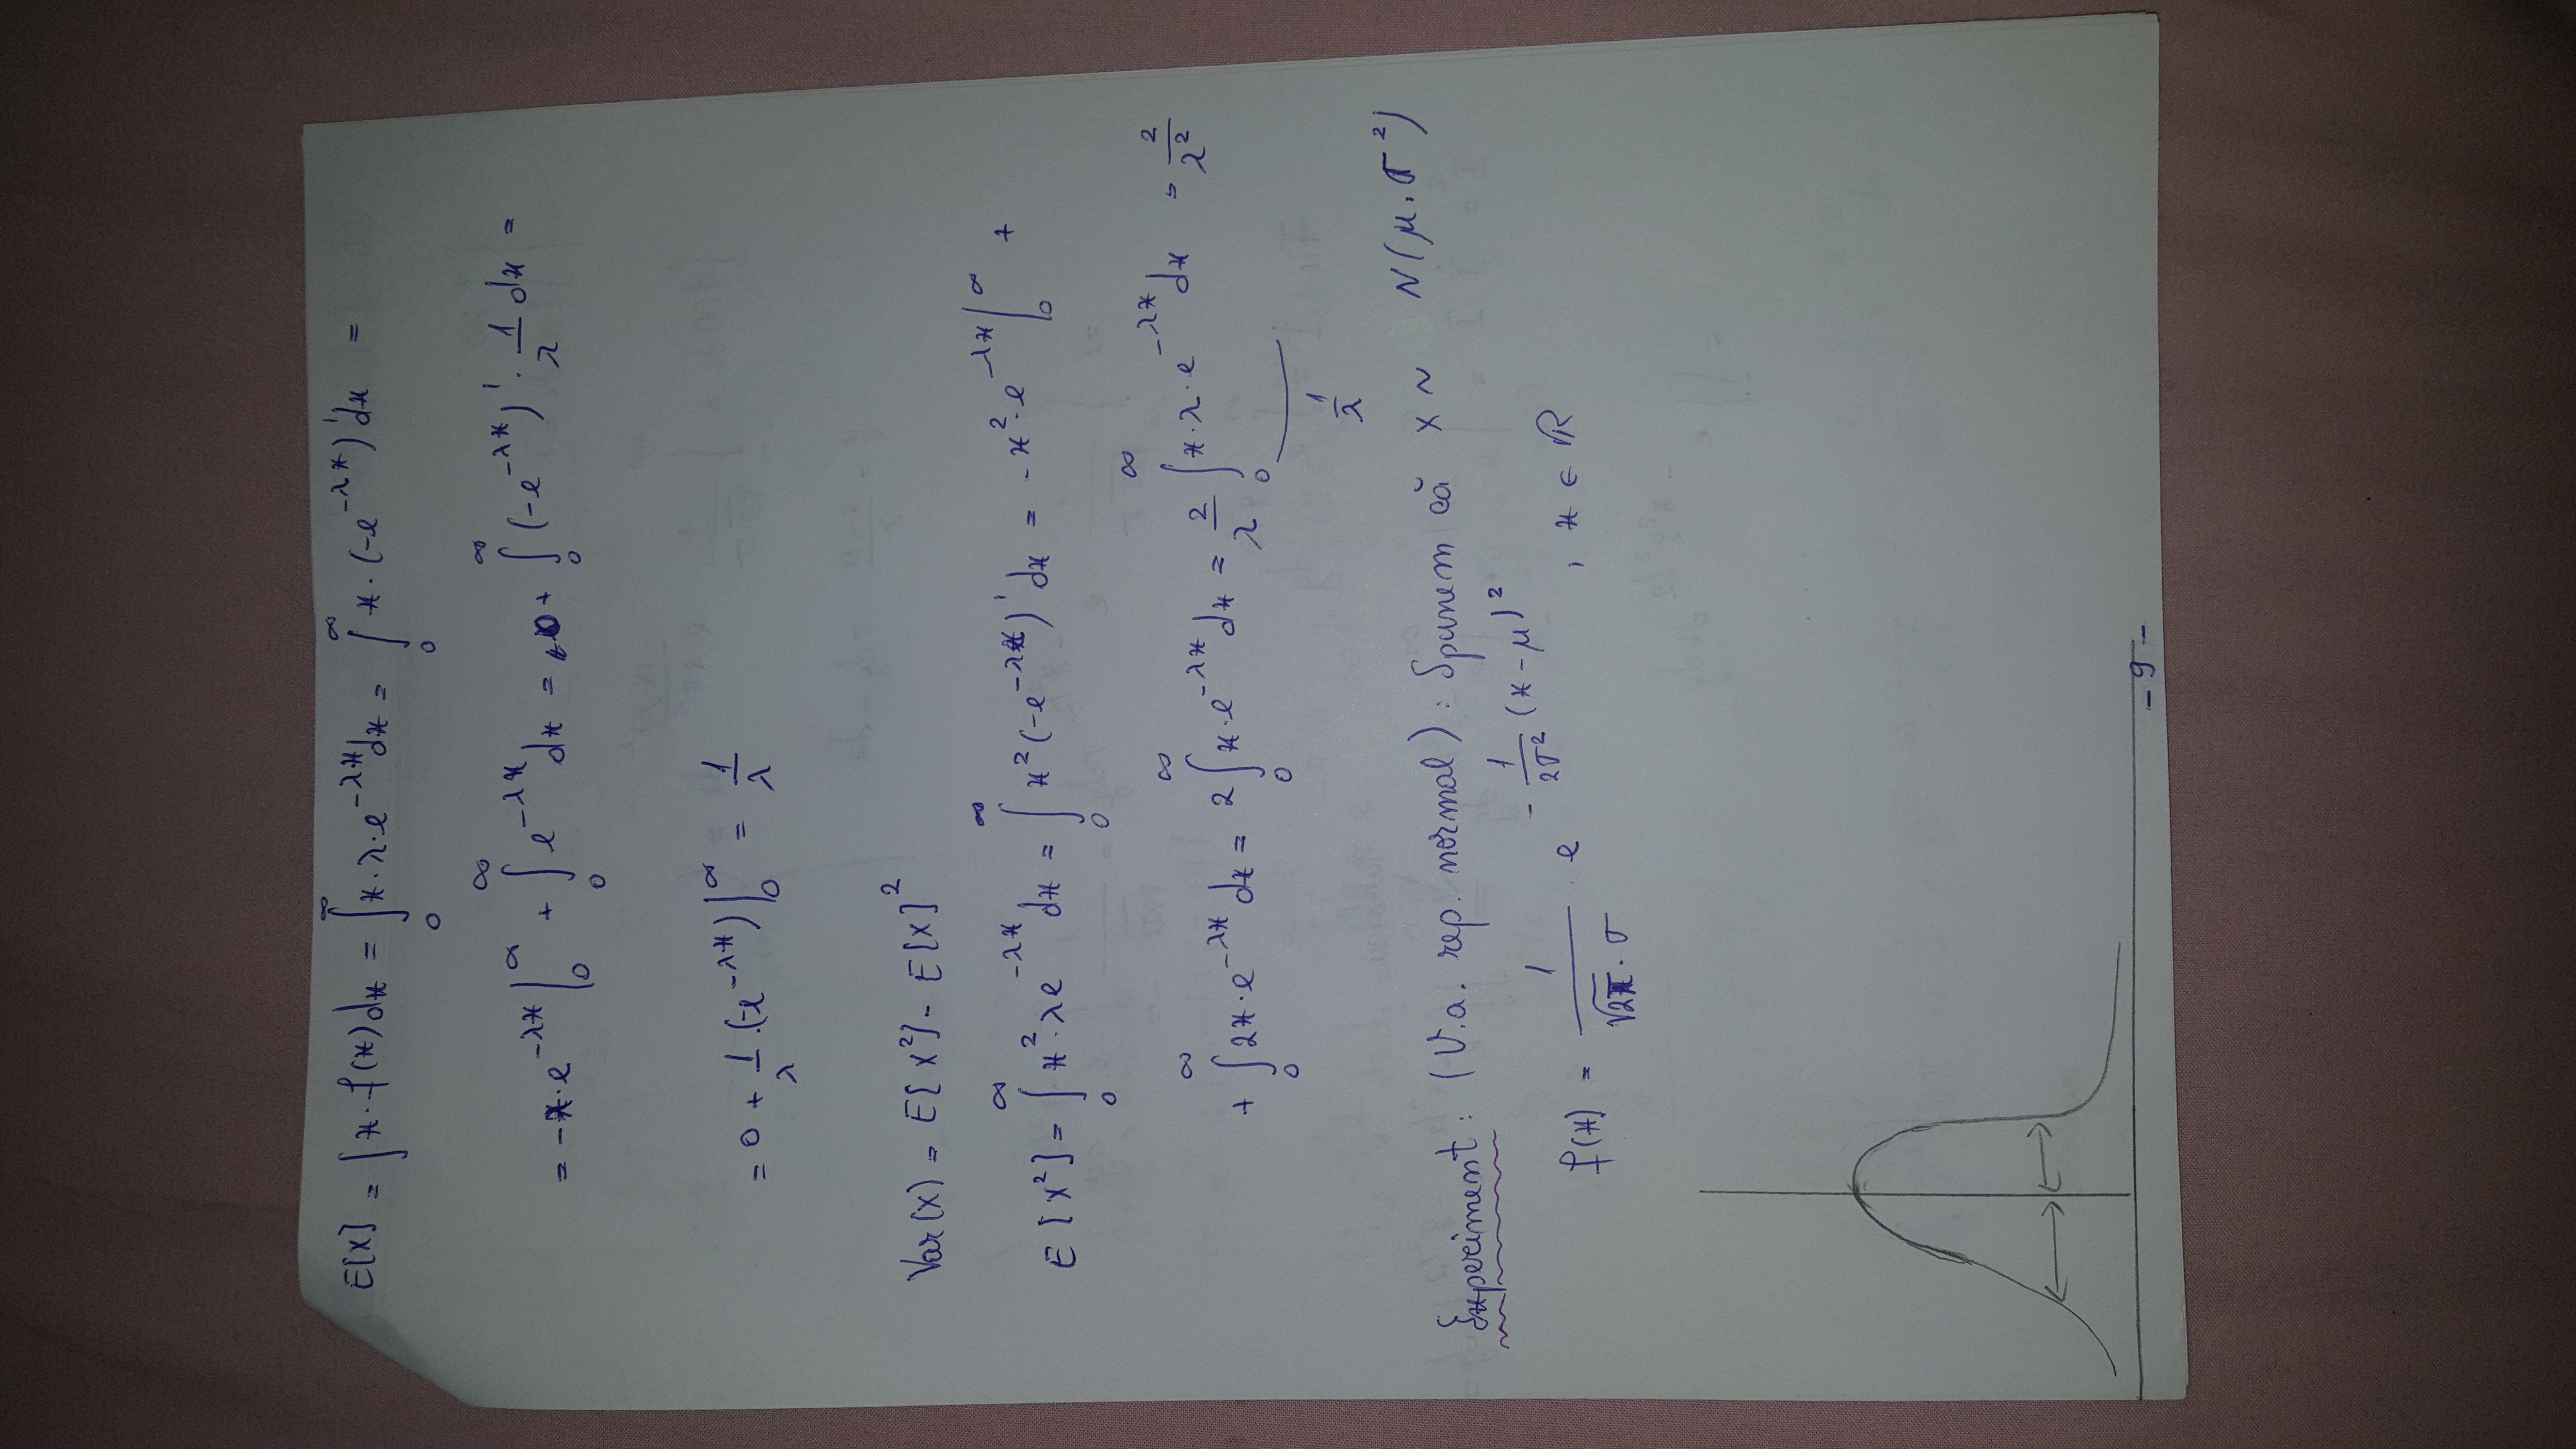 E[X] = ∫ x · f(x) dx = ∫₀^∞ x · λ · e^{-λx} dx = ∫₀^∞ x · (-e^{-λx})' dx =
= -x · e^{-λx} |₀^∞ + ∫₀^∞ e^{-λx} dx = 0 + ∫₀^∞ (-e^{-λx})' · 1/λ dx =
= 0 + 1/λ · (-e^{-λx}) |₀^∞ = 1/λ
Var(X) = E[X²] - E[X]²
E[X²] = ∫₀^∞ x² · λe^{-λx} dx = ∫₀^∞ x² (-e^{-λx})' dx = -x² · e^{-λx} |₀^∞ +
+ ∫₀^∞ 2x · e^{-λx} dx = 2 ∫₀^∞ x · e^{-λx} dx = 2/λ ∫₀^∞ x · λ · e^{-λx} dx = 2/λ²
1/λ
Experiment: (V.a. rep. normal): Spunem că X ~ N(μ, σ²)
f(x) = 1/(√2π · σ) · e^{-1/2σ² (x-μ)²}, x ∈ ℝ
- 9 -